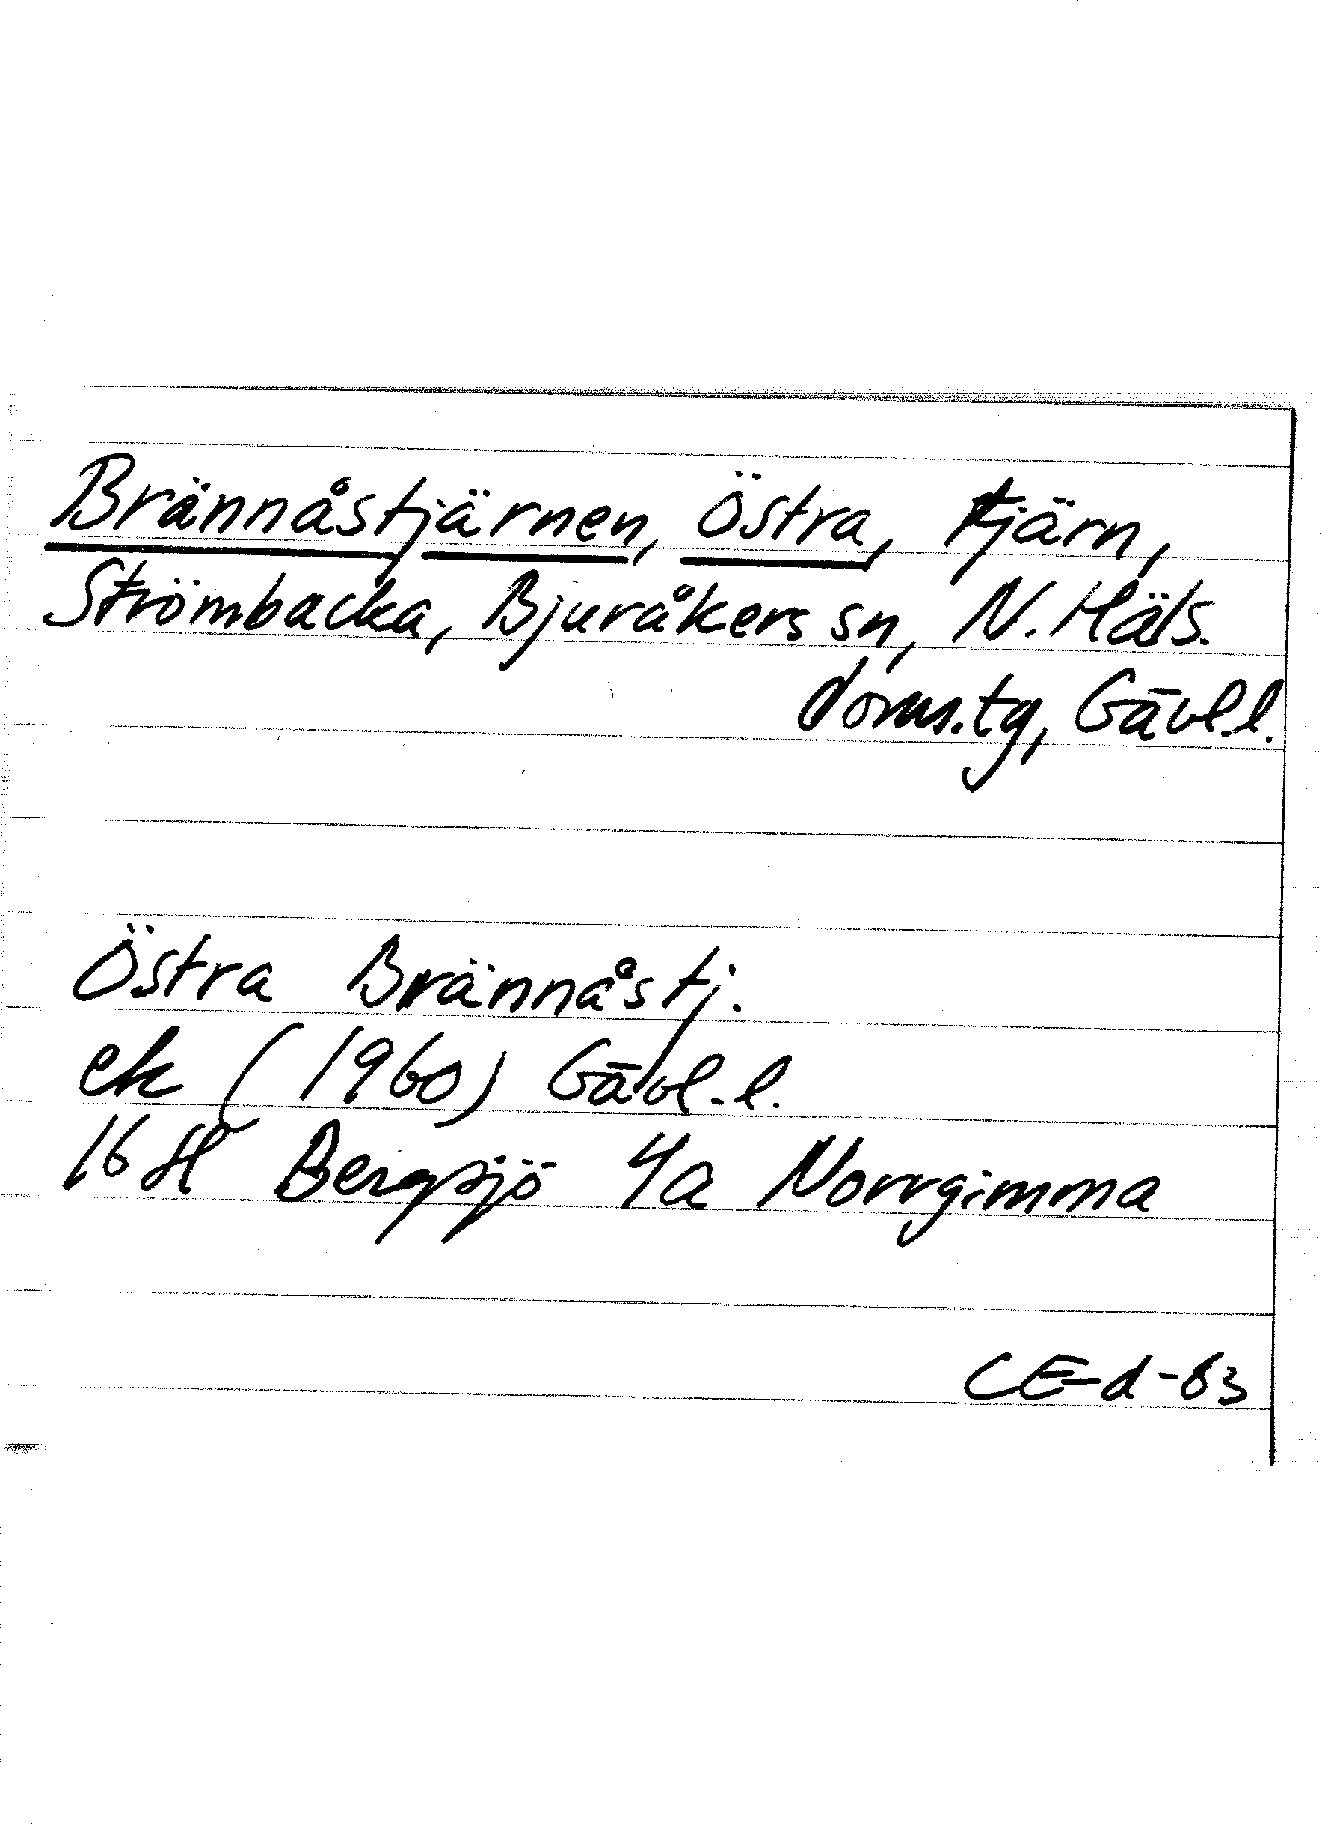 Brännåstjärnen, Östra, tjärn,
Strömbacka, Bjuråkers sn, N. Häls.
doms.tg, Gävl.l.
Östra Brännåstj.
ek (1960) Gävl.l.
16 H Bergsjö 4a Norrgimma
CE-d-63